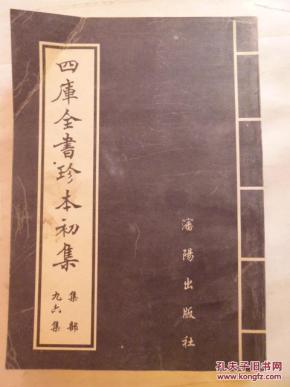 四庫全書珍本初集
集部
九六集
瀋陽出版社
孔夫子旧书网